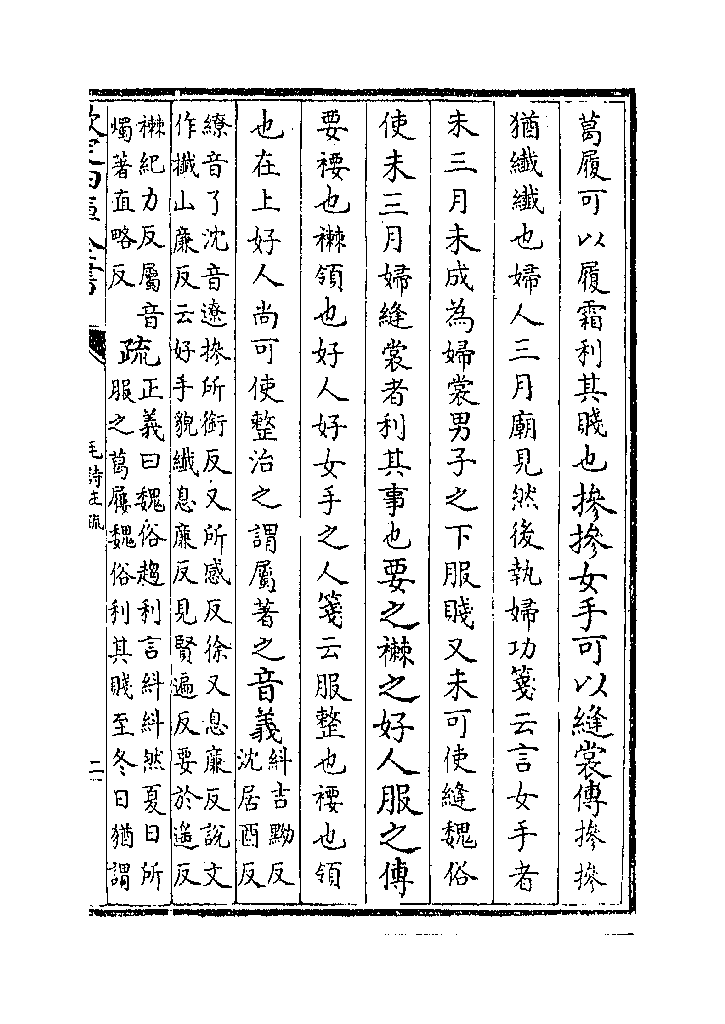 葛屨可以履霜利其賤也摻摻女手可以縫裳傳摻摻
猶纖纖也婦人三月廟見然後執婦功箋云言女手者
未三月未成為婦裳男子之下服賤又未可使縫魏俗
使未三月婦縫裳者利其事也要之襋之好人服之傳
要褄也襋領也好人好女手之人箋云服整也褄也領
也在上好人尚可使整治之謂屬著之音義
糾吉黝反
沈居酉反
繚音了沈音遼摻所銜反又所感反徐又息廉反說文
作攕山廉反云好手貌纖息廉反見賢遍反要於遙反
襋紀力反屬音
燭著直略反
疏
正義曰魏俗趨利言糾糾然夏日所
服之葛屨魏俗利其賤至冬日猶謂
欽定四庫全書
毛詩注疏
二